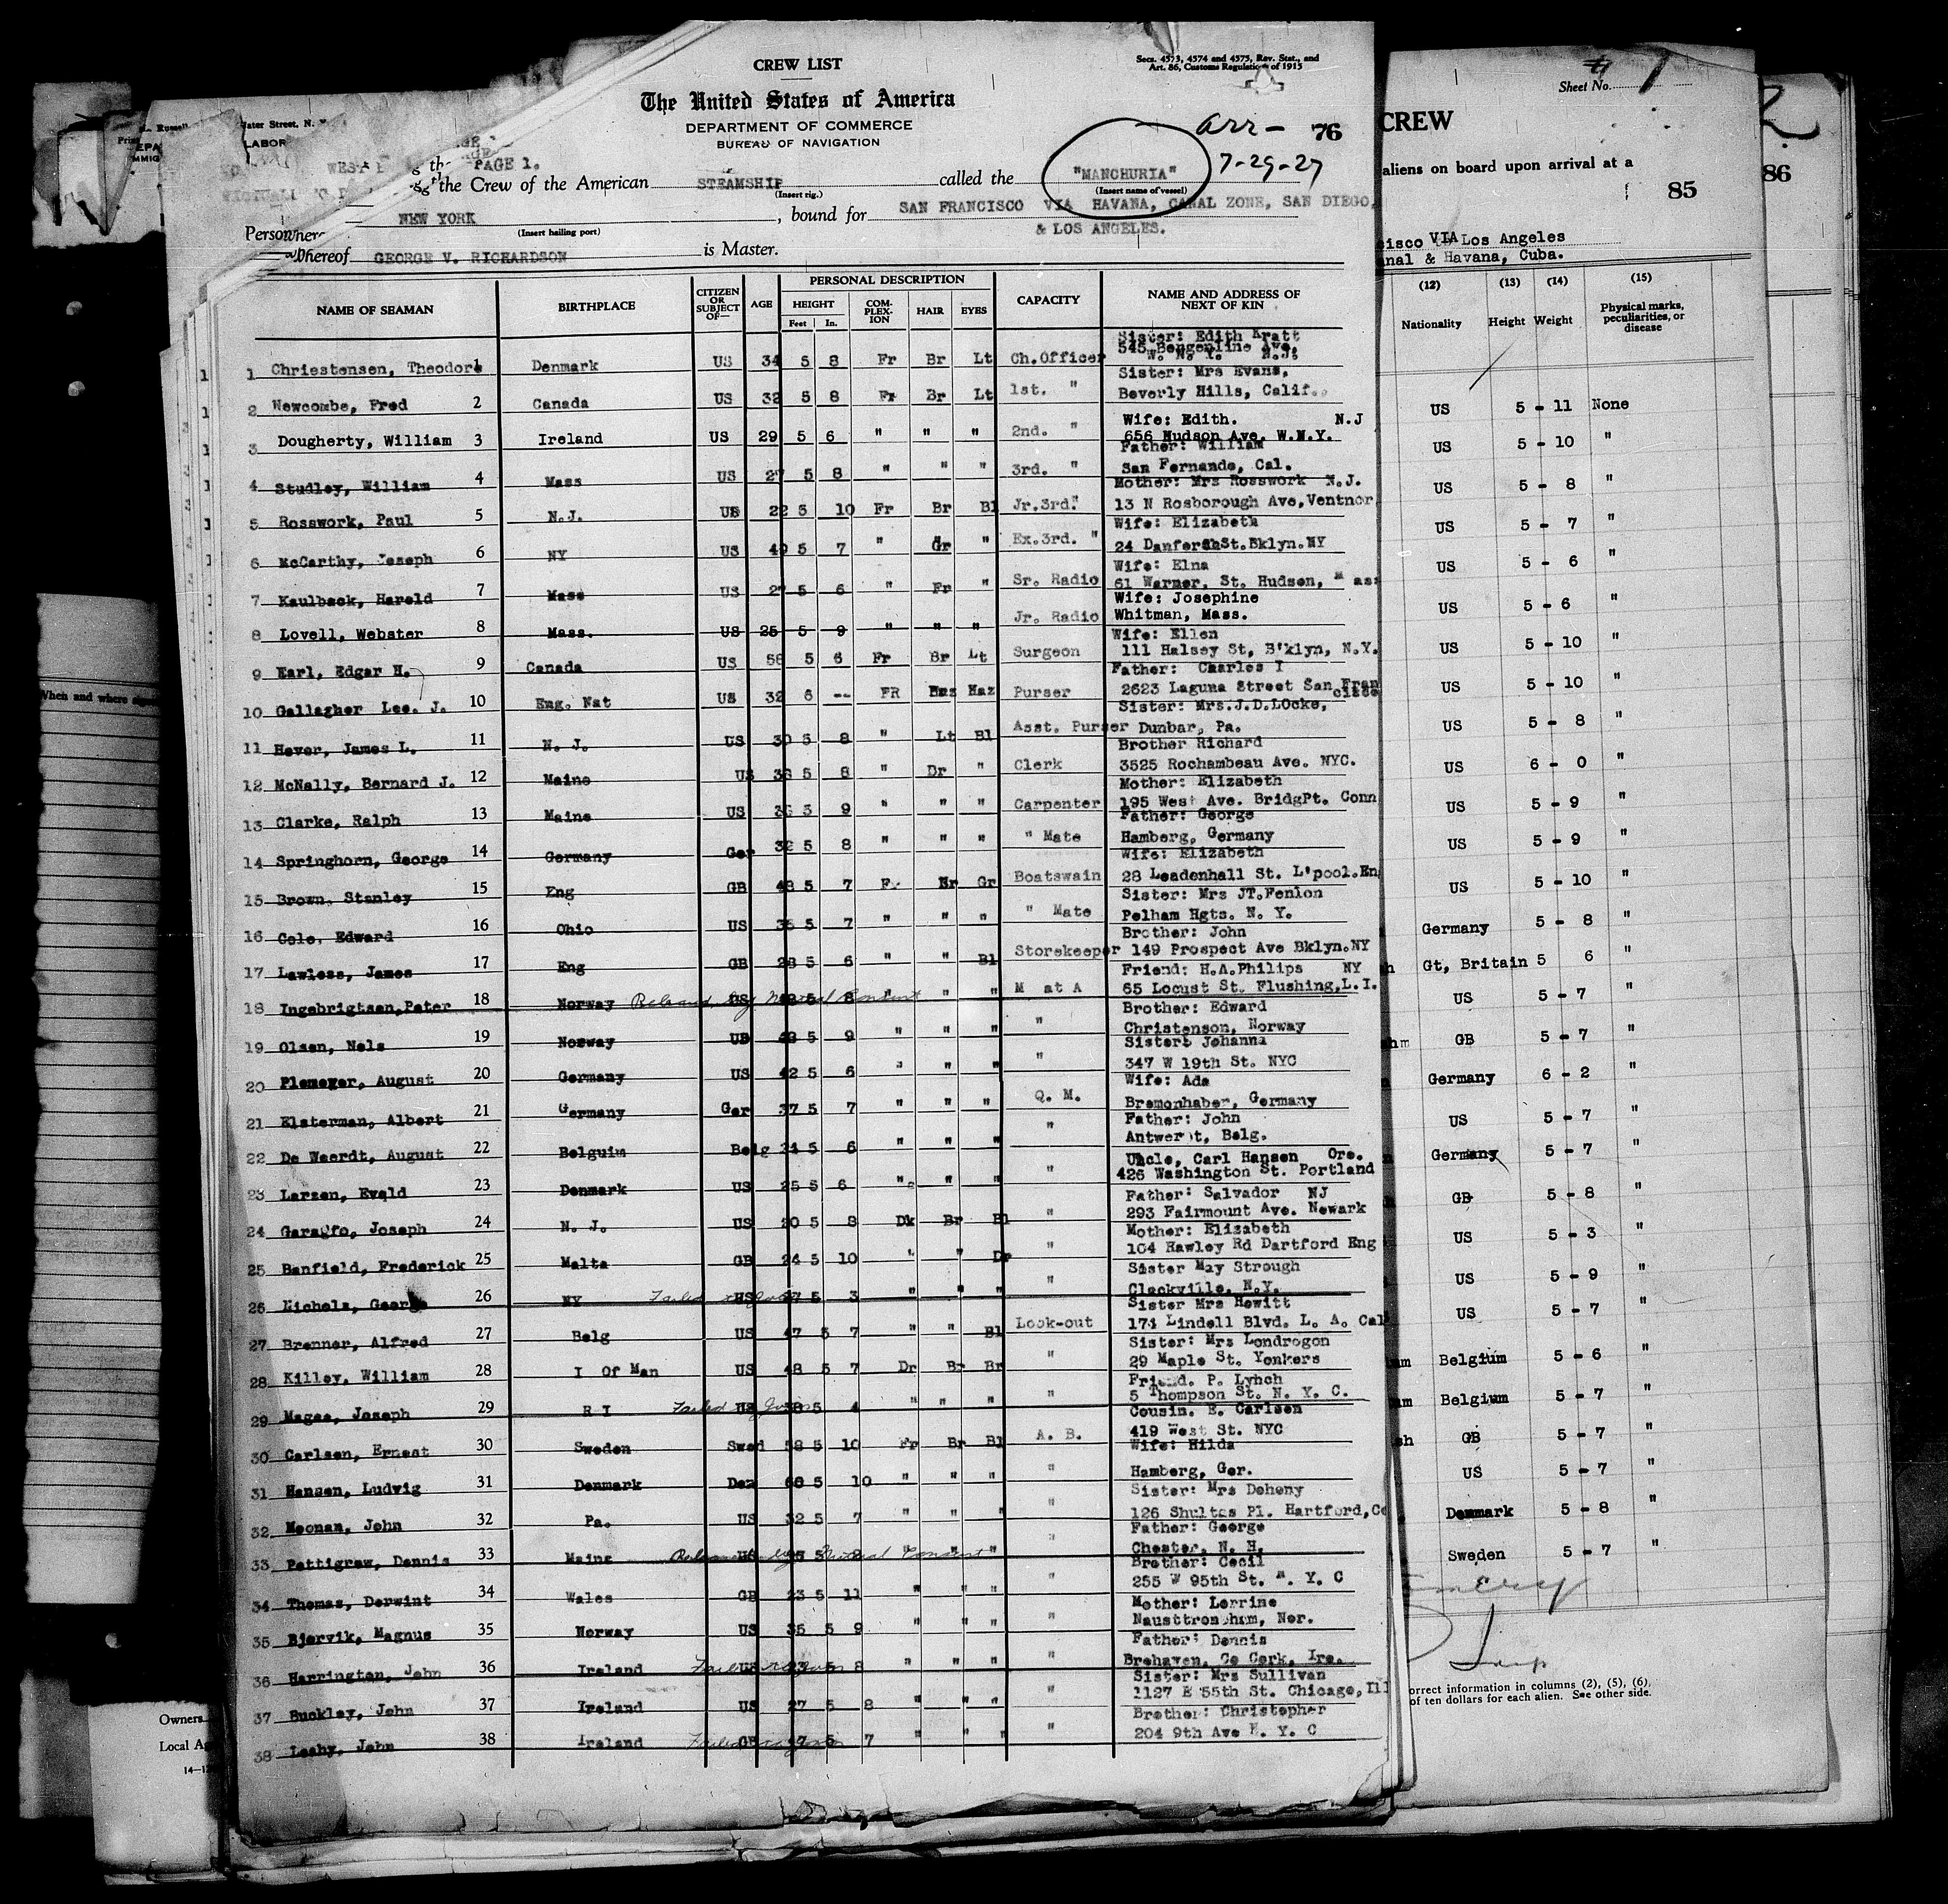 CREW LIST
Secs. 4573, 4574 and 4575, Rev. Stat., and
Art. 86, Customs Regulations of 1915
The United States of America
DEPARTMENT OF COMMERCE
BUREAU OF NAVIGATION
arr - 76
7-29-27
PAGE 1.
the Crew of the American STEAMSHIP called the "MANCHURIA"
(Insert rig.) (Insert name of vessel)
NEW YORK , bound for SAN FRANCISCO VIA HAVANA, CANAL ZONE, SAN DIEGO,
(Insert hailing port) & LOS ANGELES.
whereof GEORGE V. RICHARDSON is Master.
NAME OF SEAMAN BIRTHPLACE CITIZEN OR SUBJECT OF— AGE PERSONAL DESCRIPTION HEIGHT Feet In. COMPLEXION HAIR EYES CAPACITY NAME AND ADDRESS OF NEXT OF KIN
Sister: Edith Kratt
1 Chriestensen, Theodore 1 Denmark US 34 5 8 Fr Br Lt Ch.Officer 545 Bergenline Ave. W. N. Y. N.J.
Sister: Mrs Evans,
2 Newcombe, Fred 2 Canada US 32 5 8 Fr Br Lt 1st. " Beverly Hills, Calif.
Wife: Edith. N.J
3 Dougherty, William 3 Ireland US 29 5 6 " " " 2nd. " 656 Hudson Ave. W.N.Y.
Father: William
4 Studley, William 4 Mass US 27 5 8 " " " 3rd. " San Fernando, Cal.
Mother: Mrs Rosswork N.J.
5 Rosswork, Paul 5 N.J. US 22 5 10 Fr Br Bl Jr.3rd." 13 N Rosborough Ave,Ventnor
Wife: Elizabeth
6 McCarthy, Joseph 6 NY US 49 5 7 " Gr " Ex.3rd. " 24 Danforth St.Bklyn.NY
Wife: Elna
7 Kaulback, Harold 7 Mass US 27 5 6 " Fr " Sr. Radio 61 Warner, St. Hudson, Mass
Wife: Josephine
8 Lovell, Webster 8 Mass. US 25 5 9 " " " Jr. Radio Whitman, Mass.
Wife: Ellen
9 Earl, Edgar H. 9 Canada US 58 5 6 Fr Br Lt Surgeon 111 Halsey St, B'klyn, N.Y.
Father: Charles I
10 Gallagher Lee. J. 10 Eng. Nat US 32 6 -- FR Haz Purser 2623 Laguna Street San Francisco
Sister: Mrs.J.D.LOcke,
11 Hever, James L. 11 N. J. US 30 5 8 " Lt Bl Asst. Purser Dunbar, Pa.
Brother Richard
12 McNally, Bernard J. 12 Maine US 5 8 " Dr " Clerk 3525 Rochambeau Ave. NYC.
Mother: Elizabeth
13 Clarke, Ralph 13 Maine US 9 " " " Carpenter 195 West Ave. BridgPt. Conn
Father: George
14 Springhorn, George 14 Germany Ger 32 5 8 " " " " Mate Hamberg, Germany
Wife: Elizabeth
15 Brown, Stanley 15 Eng GB 48 5 7 Gr Boatswain 28 Leadenhall St. L'pool.Eng
Sister: Mrs JT.Fenlon
16 Cole, Edward 16 Ohio US 35 5 7 " " " " Mate Pelham Hgts. N. Y.
Brother: John
17 Lawless, James 17 Eng GB 28 5 6 " " Bl Storekeeper 149 Prospect Ave Bklyn.NY
Friend: H.A.Philips NY
18 Ingebrigtsen,Peter 18 Norway Released by Mutual Consent US 5 8 " " " M at A 65 Locust St. Flushing,L.I.
Brother: Edward
19 Olsen, Nels 19 Norway US 48 5 9 " " " " Christenson, Norway
Sister: Johanna
20 Plemeyer, August 20 Germany US 42 5 6 " " " " 347 W 19th St. NYC
Wife: Ada
21 Elsterman, Albert 21 Germany Ger 37 5 7 " " " Q. M. Bremonhaber, Germany
Father: John
22 De Waerdt, August 22 Belguim Belg 24 5 6 " " " " Antwerpt, Belg.
Uncle, Carl Hansen Ore.
23 Larsen, Evald 23 Denmark US 25 5 6 " " " " 426 Washington St. Portland
Father: Salvador NJ
24 Garagfo, Joseph 24 N. J. US 20 5 8 Dk Br Bl " 293 Fairmount Ave. Newark
Mother: Elizabeth
25 Banfield, Frederick 25 Malta GB 24 5 10 " " Dr " 104 Hawley Rd Dartford Eng
Sister May Strough
26 Nichols, George 26 NY Failed to join US 5 3 " " " " Clockville, N.Y.
Sister Mrs Hewitt
27 Brenner, Alfred 27 Belg US 47 5 7 " " Bl Look-out 174 Lindell Blvd. L. A. Cal
Sister: Mrs Londrogon
28 Killey, William 28 I Of Man US 48 5 7 Dr Br Br " 29 Maple St. Yonkers
Friend. P. Lynch
29 Magee, Joseph 29 R I Failed to join US 38 5 4 " " " " 5 Thompson St. N. Y. C.
Cousin. E. Carlsen
30 Carlsen, Ernest 30 Sweden Swed 58 5 10 Fr Br Bl A. B. 419 West St. NYC
Wife: Hilda
31 Hansen, Ludwig 31 Denmark Den 60 5 10 " " " " Hamberg, Ger.
Sister: Mrs Doheny
32 Noonan, John 32 Pa. US 32 5 7 " " " " 126 Shultas Pl. Hartford,Co
Father: George
33 Pettigrew, Dennis 33 Maine Released by Mutual Consent US 5 8 " " " Chester, N. H.
Brother: Cecil
34 Thomas, Derwint 34 Wales GB 23 5 11 " " " " 255 W 95th St. N. Y. C
Mother: Lorrine
35 Bjervik, Magnus 35 Norway US 35 5 9 " " " " Nausttronham, Nor.
Father: Dennis
36 Harrington, John 36 Ireland Failed to join US 23 5 8 " " " " Brehaven, Co Cork, Ire.
Sister: Mrs Sullivan
37 Buckley, John 37 Ireland US 27 5 8 " " " " 1127 E 55th St. Chicago,Ill
Brother: Christopher
38 Leahy, John 38 Ireland Failed to join GB 5 7 " " " " 204 9th Ave N. Y. C
Sheet No. 1
CREW
aliens on board upon arrival at a
85
86
2
cisco VIA Los Angeles
anal & Havana, Cuba.
(12) (13) (14) (15)
Nationality Height Weight Physical marks, peculiarities, or disease
US 5 - 11 None
US 5 - 10 "
US 5 - 8 "
US 5 - 7 "
US 5 - 6 "
US 5 - 6 "
US 5 - 10 "
US 5 - 10 "
US 5 - 8 "
US 6 - 0 "
US 5 - 9 "
US 5 - 9 "
US 5 - 10 "
Germany 5 - 8 "
Gt, Britain 5 6 "
US 5 - 7 "
GB 5 - 7 "
Germany 6 - 2 "
US 5 - 7 "
Germany 5 - 7 "
GB 5 - 8 "
US 5 - 3 "
US 5 - 9 "
US 5 - 7 "
Belgium 5 - 6 "
Belgium 5 - 7 "
GB 5 - 7 "
US 5 - 7 "
Denmark 5 - 8 "
Sweden 5 - 7 "
orrect information in columns (2), (5), (6),
of ten dollars for each alien. See other side.
When and where
Owners
Local Ag
14-1